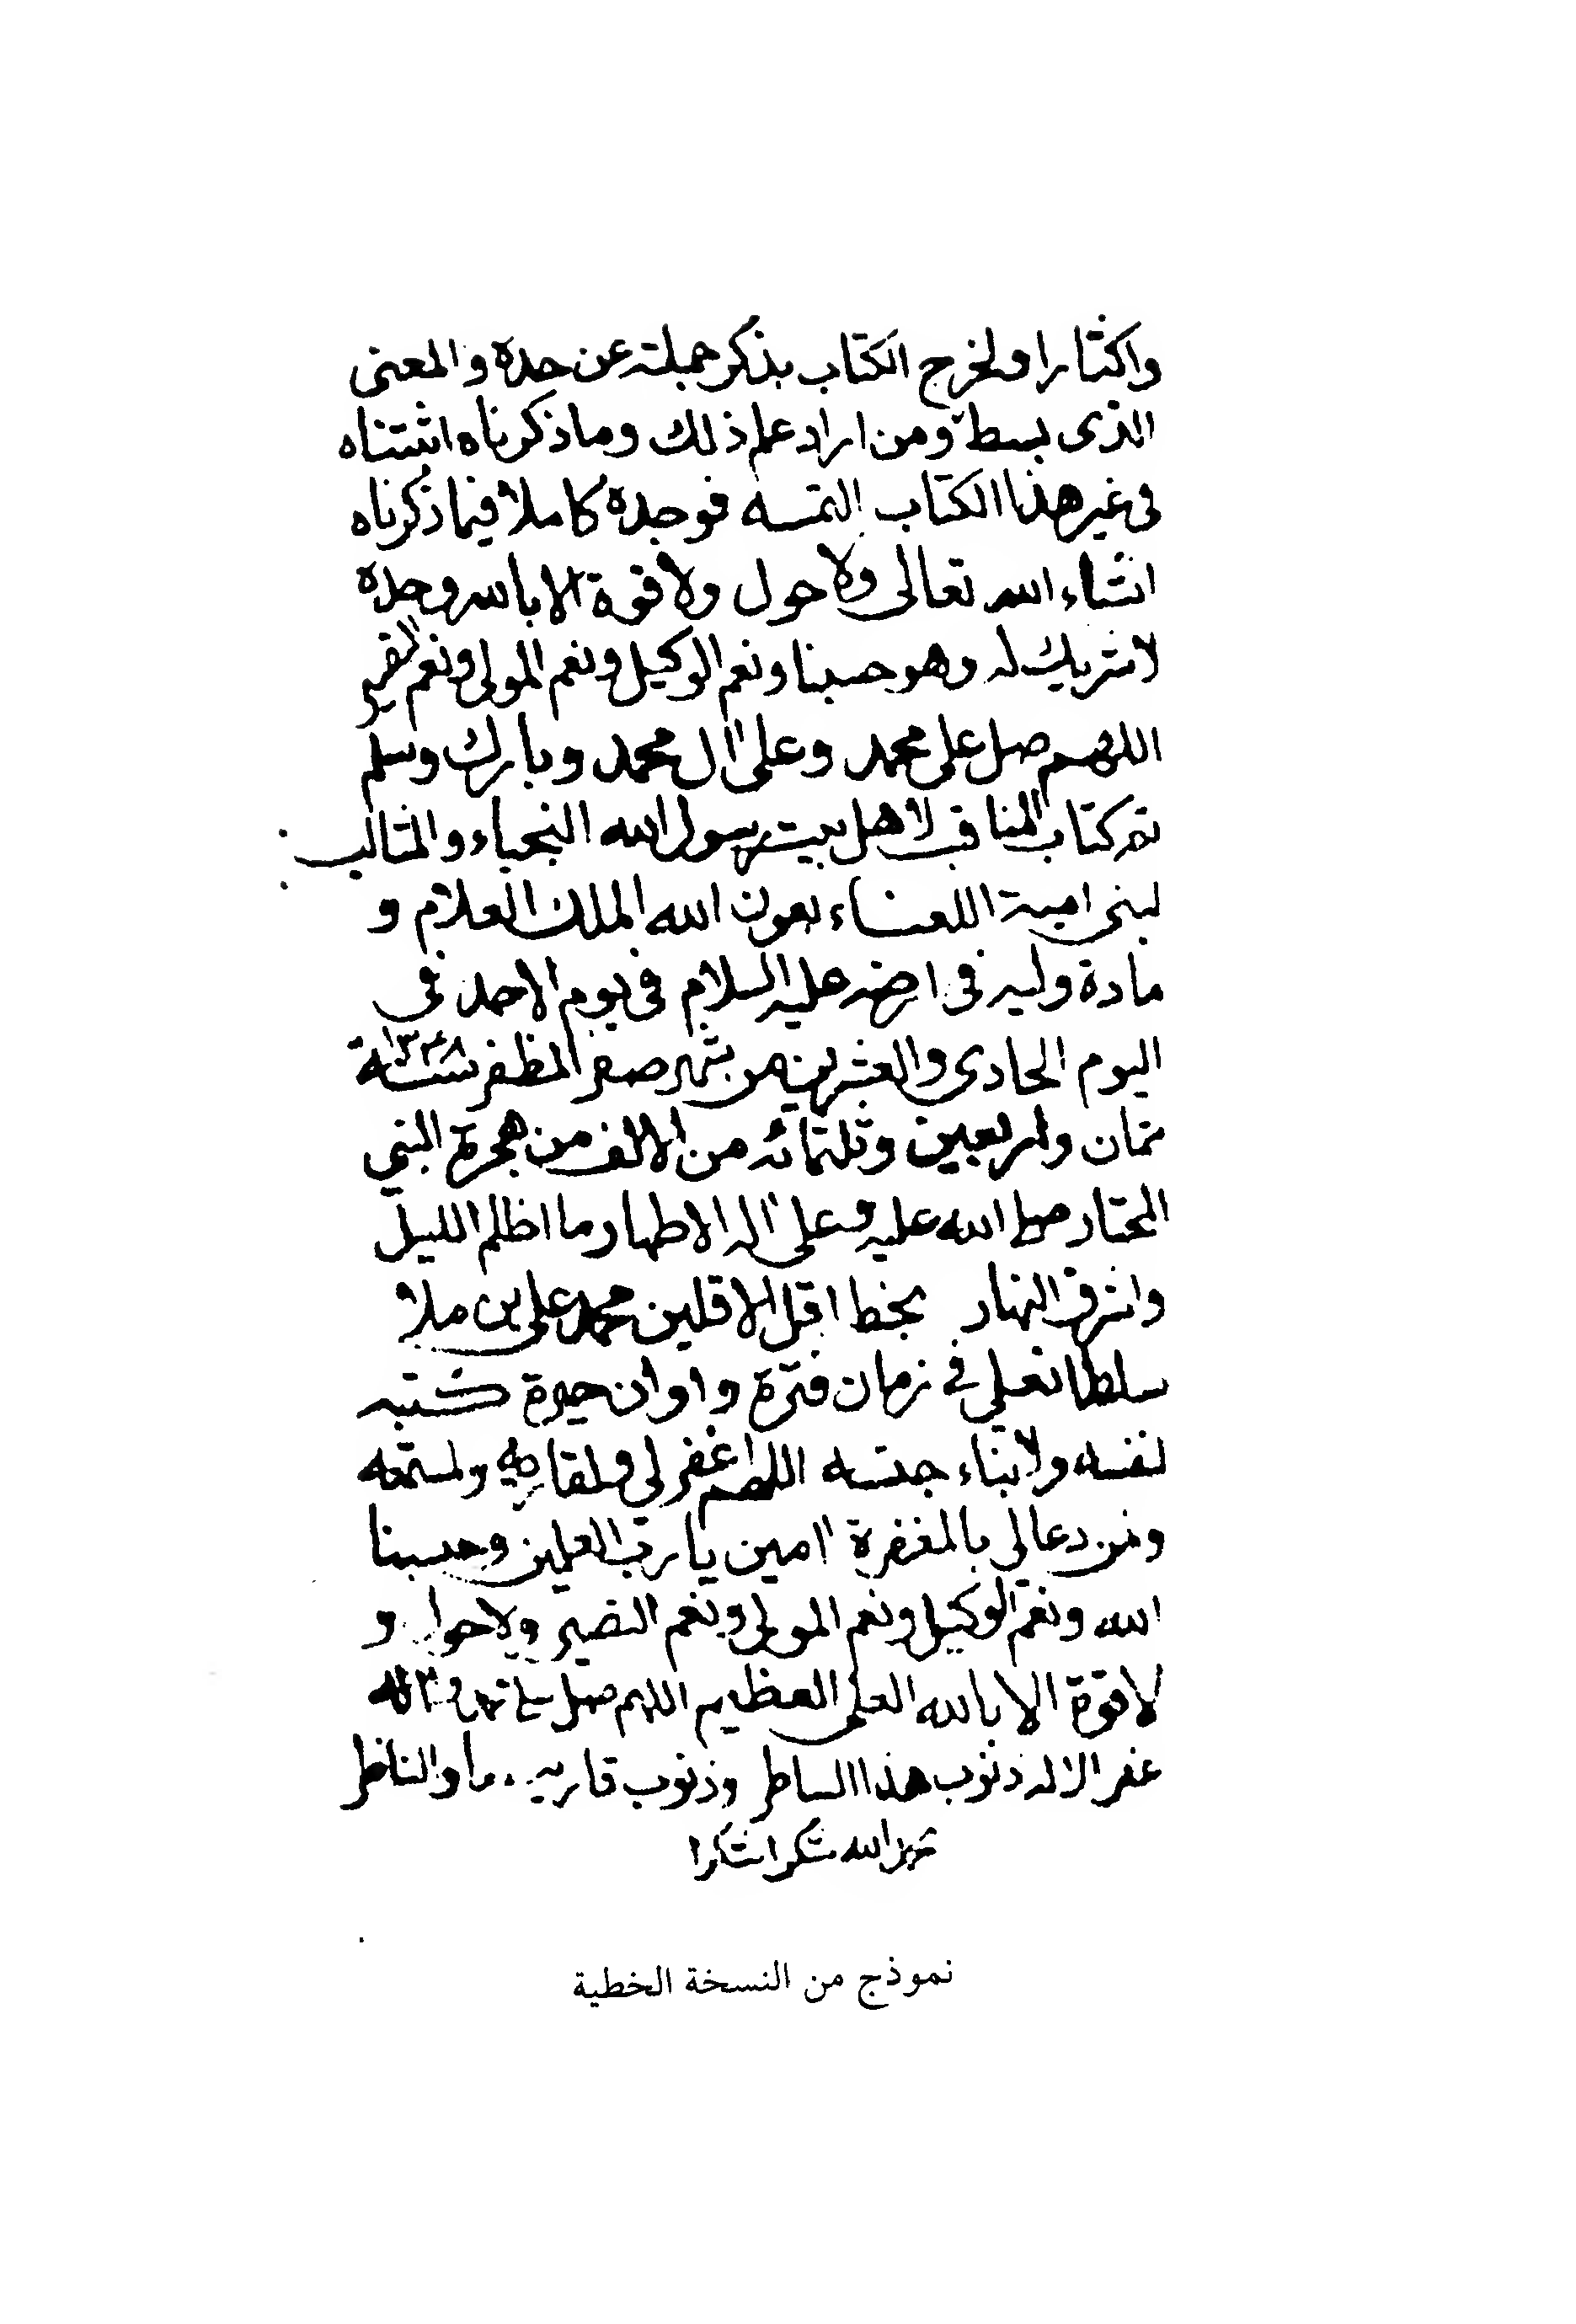 واكثارا ولخرج الكتاب بذكر جملته عن حده والمعنى
الذى بسط ومن اراد علم ذلك وما ذكرناه اثبتناه
فى غير هذا الكتاب التمسه فوجده كاملا فيما ذكرناه
انشاء الله تعالى ولا حول ولا قوة الا بالله وحده
لا شريك له وهو حسبنا ونعم الوكيل ونعم المولى ونعم النصير
اللهم صل على محمد وعلى ال محمد وبارك وسلم
تم كتاب المناقب لاهل بيت رسول الله النجباء والمثالب
لبنى امية اللعناء بعون الله الملك العلام و
مادة وليه فى ارضه عليه السلام فى يوم الاحد فى
اليوم الحادى والعشرين من شهر صفر المظفر سنة ١٣٤٨
ثمان واربعين وثلثمائه من الالف من هجرة النبي
المختار صلى الله عليه وعلى اله الاطهار ما اظلم الليل
واشرق النهار بخط اقل الاقلين محمد على بن ملا
سلطانعلي في زمان فترة واوان حيرة كتبه
لنفسه ولابناء جنسه اللهم اغفر لى ولقاريه ولمستمعه
ومن دعا لى بالمغفرة امين يا رب العلمين وحسبنا
الله ونعم الوكيل ونعم المولى ونعم النصير ولا حول و
لا قوة الا بالله العلى العظيم اللهم صل على محمد واله
غفر الاله ذنوب هذا الساطر وذنوب قاريه والناظر
الله شكرا شكرا
نموذج من النسخة الخطية